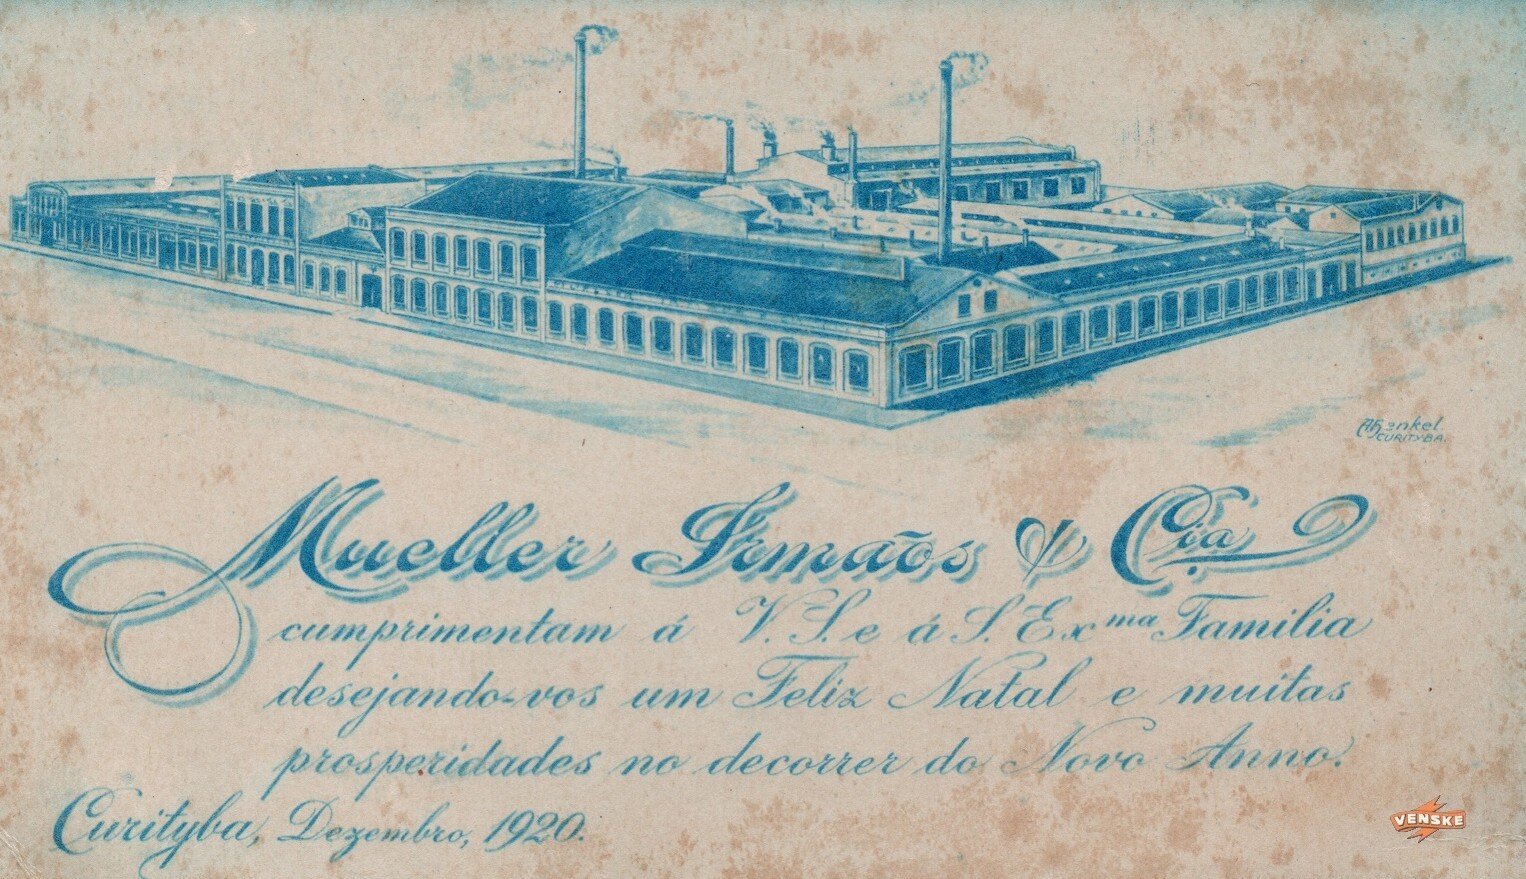 CURITYBA.
Mueller Irmãos & Cia
cumprimentam á V. S. e á S. Exma Familia
desejando-vos um Feliz Natal e muitas
prosperidades no decorrer do Novo Anno.
Curityba, Dezembro, 1920.
VENSKE